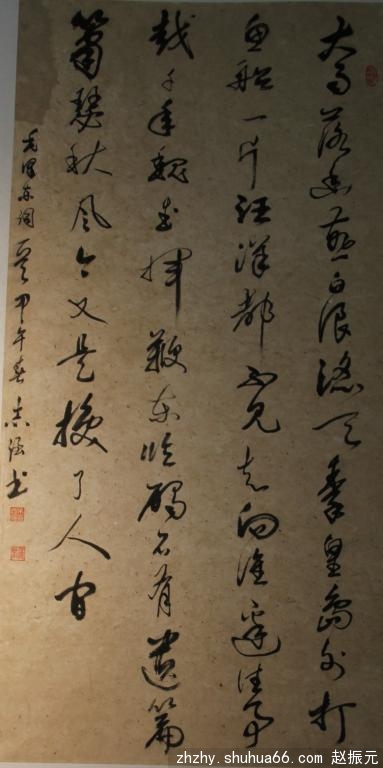 大雨落幽燕白浪滔天秦皇島外打
魚船一片汪洋都不見知向誰邊往事
越千年魏武揮鞭東臨碣石有遺篇
蕭瑟秋風今又是換了人间
毛澤东词 甲午春志强书
zhzhy.shuhua66.com 赵振元